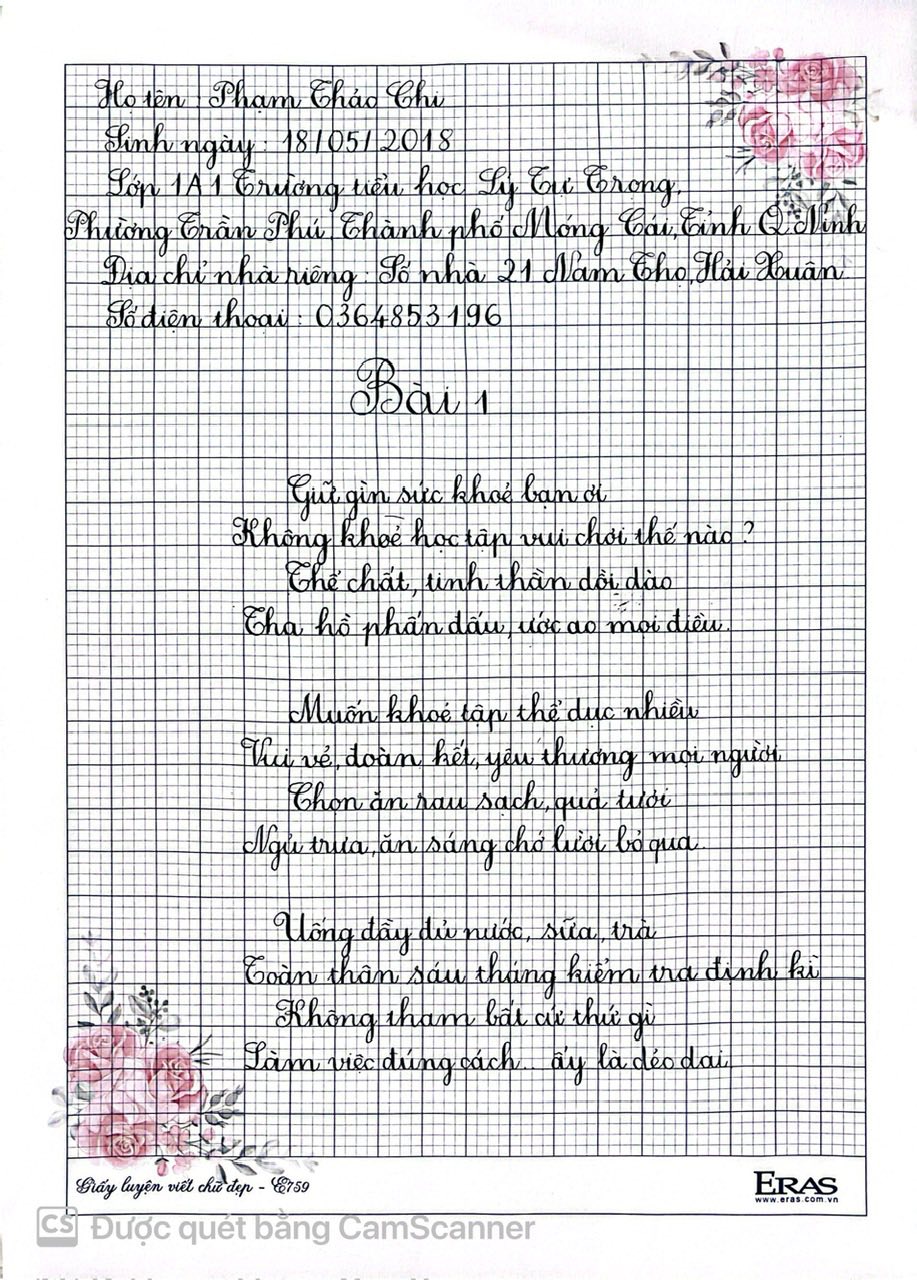 Họ tên : Phạm Thảo Chi
Sinh ngày : 18/05/2018
Lớp 1A1 Trường tiểu học Lý Tự Trọng,
Phường Trần Phú, Thành phố Móng Cái, Tỉnh Q. Ninh
Địa chỉ nhà riêng : Số nhà 21 Nam Thọ, Hải Xuân
Số điện thoại : 0364853196
Bài 1
Giữ gìn sức khoẻ bạn ơi
Không khoẻ học tập vui chơi thế nào ?
Thể chất, tinh thần dồi dào
Tha hồ phấn đấu, ước ao mọi điều.
Muốn khoẻ tập thể dục nhiều
Vui vẻ, đoàn kết, yêu thương mọi người
Chọn ăn rau sạch, quả tươi
Ngủ trưa, ăn sáng chớ lười bỏ qua.
Uống đầy đủ nước, sữa, trà
Toàn thân sáu tháng kiểm tra định kì
Không tham bất cứ thứ gì
Làm việc đúng cách... ấy là dẻo dai
Giấy luyện viết chữ đẹp - E759
ERAS
www.eras.com.vn
CS Được quét bằng CamScanner